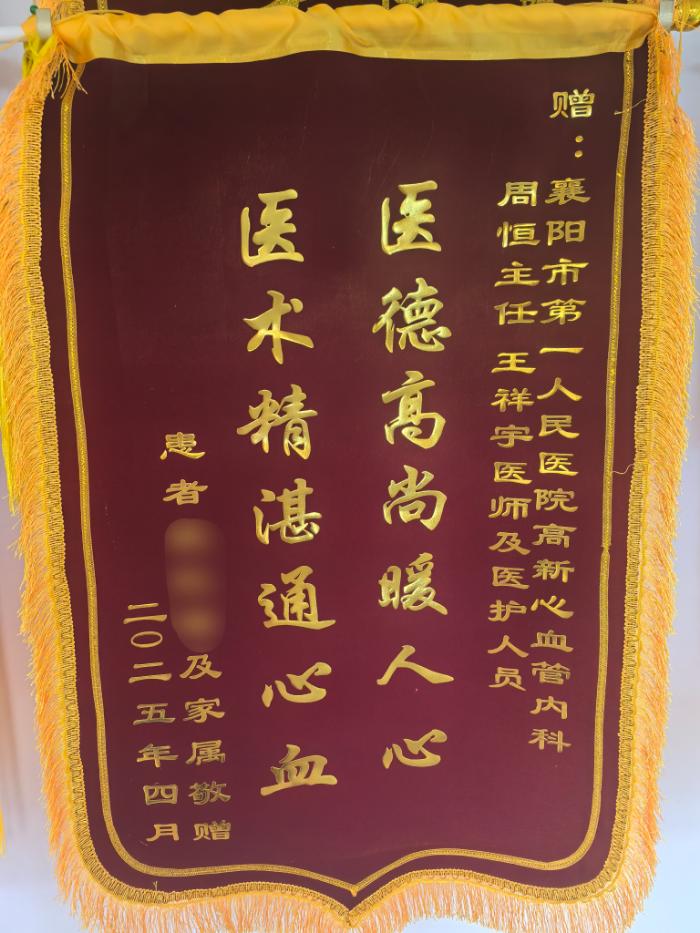 赠：襄阳市第一人民医院高新心血管内科
周恒主任 王祥宇医师及医护人员
医德高尚暖人心
医术精湛通心血
患者
及家属敬赠
二〇二五年四月